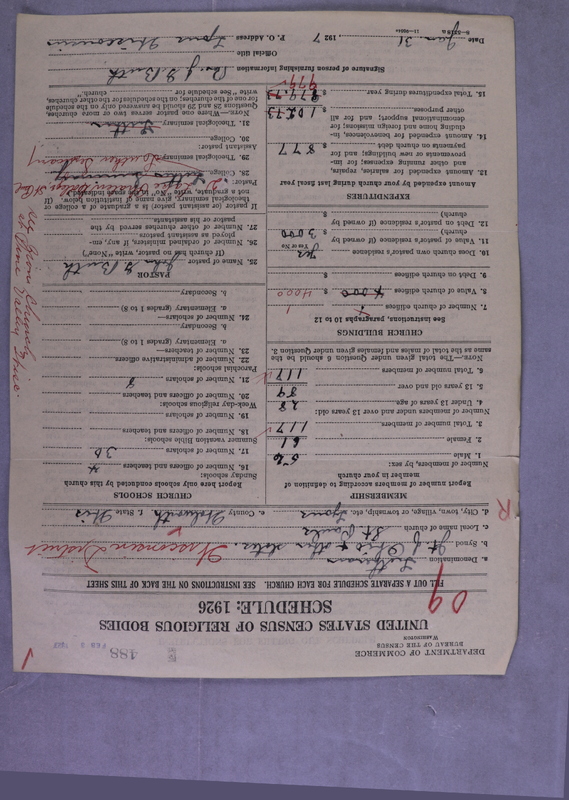 DEPARTMENT OF COMMERCE
BUREAU OF THE CENSUS
WASHINGTON
488
FEB 2 1927
UNITED STATES CENSUS OF RELIGIOUS BODIES
SCHEDULE: 1926
09
FILL OUT A SEPARATE SCHEDULE FOR EACH CHURCH. SEE INSTRUCTIONS ON THE BACK OF THIS SHEET
a. Denomination Lutheran
b. Synod Jt. of Ohio & other states. Wisconsin District
c. Local name of church St Pauls
d. City, town, village, or township, etc. Lyons e. County Walworth f. State Wis
R
MEMBERSHIP
Report number of members according to definition of member in your church
Number of members, by sex:
1. Male 56
2. Female 61
3. Total number of members 117
Number of members under and over 13 years old:
4. Under 13 years of age 28
5. 13 years old and over 89
6. Total number of members 117
NOTE.—The total given under Question 6 should be the same as the total of males and females given under Question 3.
CHURCH BUILDINGS
See instructions, paragraphs 10 to 12
7. Number of church edifices 1
8. Value of church edifices $ 4000 4000
9. Debt on church edifices $
10. Does church own pastor's residence Yes
Yes or No
11. Value of pastor's residence (if owned by church) $ 3000
12. Debt on pastor's residence (if owned by church) $
EXPENDITURES
Amount expended by your church during last fiscal year
13. Amount expended for salaries, repairs, and other running expenses; for improvements or new buildings; and for payments on church debt $ 877
14. Amount expended for benevolences, including home and foreign missions; for denominational support; and for all other purposes $ 102.73
15. Total expenditures during year $ 979.73
979
CHURCH SCHOOLS
Report here only schools conducted by this church
Sunday schools:
16. Number of officers and teachers 4
17. Number of scholars 30
Summer vacation Bible schools:
18. Number of officers and teachers
19. Number of scholars
Week-day religious schools:
20. Number of officers and teachers
21. Number of scholars 8
Parochial schools:
22. Number of administrative officers
23. Number of teachers—
a. Elementary (grades 1 to 8)
b. Secondary
24. Number of scholars—
a. Elementary (grades 1 to 8)
b. Secondary
PASTOR
25. Name of pastor John G Buth
(If church has no pastor, write "None")
26. Number of ordained ministers, if any, employed as assistant pastors
27. Number of other churches served by the pastor or his assistants
If pastor (or assistant pastor) is a graduate of a college or theological seminary, give name of institution below. (If not a graduate, write "No" in the space provided)
Pastor:
28. College
29. Theological seminary
Assistant pastor:
30. College
31. Theological seminary
NOTE.—Where one pastor serves two or more churches, Questions 28 and 29 should be answered only on the schedule for one of the churches; on the schedules for the other churches, write "See Schedule for church."
Signature of person furnishing information Rev. J G Buth
Official title
Date Jan. 31 1927 P. O. Address Lyons Wisconsin